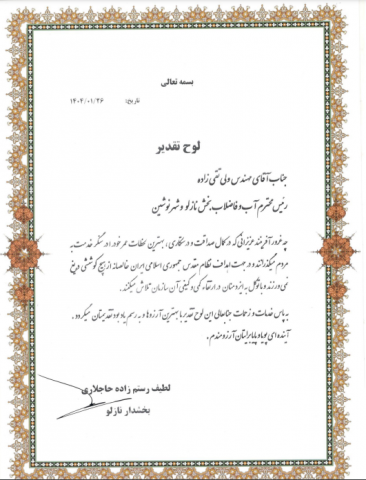 بسمه تعالی
تاریخ: ۱۴۰۲/۰۱/۲۶
لوح تقدیر
جناب آقای مهندس ولی تقی زاده
رئیس محترم آب و فاضلاب بخش نازلو و شهر نوشین
چه غرور آفرینند عزیزانی که در کمال صداقت و درستکاری، بهترین لحظات عمر خود را در سنگر خدمت به
مردم میگذرانند و در جهت اهداف نظام مقدس جمهوری اسلامی ایران خالصانه از هیچ کوششی دریغ
نمی ورزند و با توکل به ایزد منان در ارتقاء کمی و کیفی آن سازمان تلاش میکنند.
به پاس خدمات و زحمات جنابعالی این لوح تقدیر با بهترین آرزوها و به رسم یادبود تقدیمتان میگردد.
آینده ای پویا و پایا برایتان آرزومندم.
لطیف رستم زاده حاجلاری
بخشدار نازلو